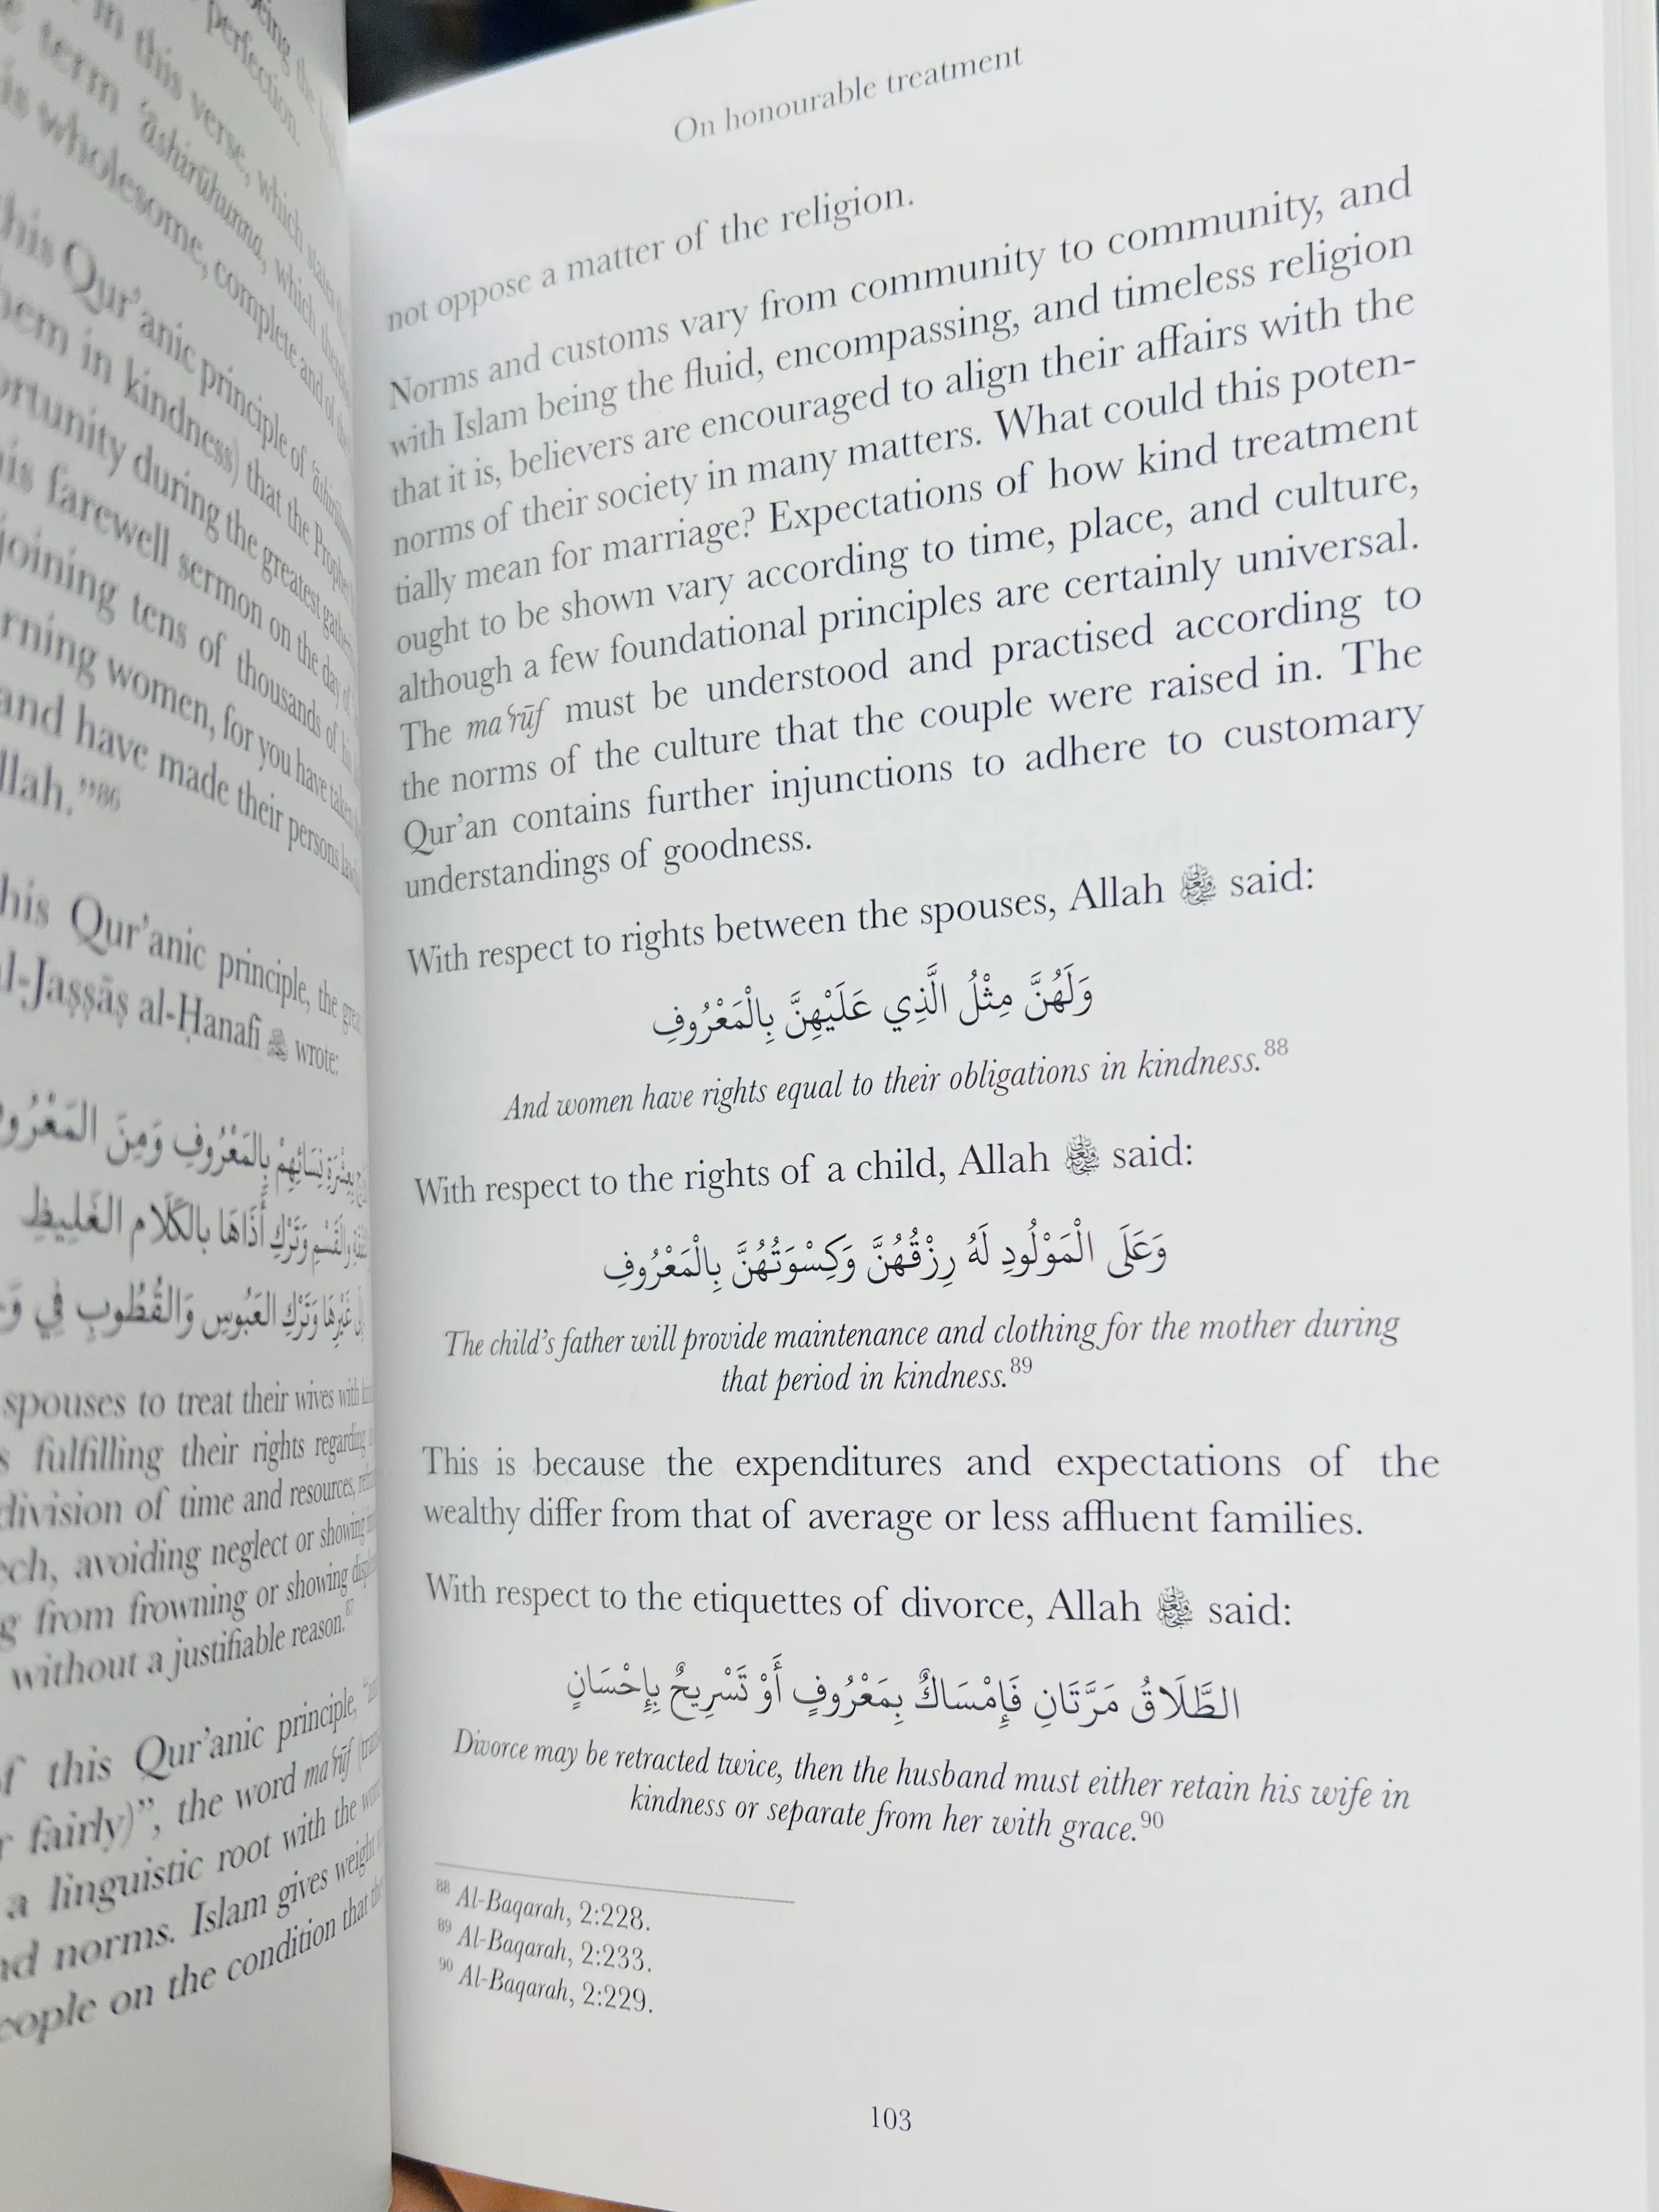 in this verse, which states
term ʿāshirūhunna, which
is wholesome, complete and of the
this Qur’anic principle of
them in kindness) that the Prophet
during the greatest
his farewell sermon on the day of
joining tens of thousands of his
women, for you have taken
and have made their persons
llah.”86
his Qur’anic principle, the great
al-Jaṣṣāṣ al-Ḥanafi wrote:
نِسَائِهِمْ بِالمَعْرُوفِ وَمِنَ
وَتَرْكِ أَذَاهَا بِالكَلَامِ الغَلِيظِ
غَيْرِهَا وَتَرْكِ العَبُوسِ وَالقُطُوبِ فِي
spouses to treat their wives with
fulfilling their rights regarding
division of time and resources,
avoiding neglect or showing
from frowning or showing
without a justifiable reason.87
of this Qur’anic principle,
fairly)”, the word maʿrūf
a linguistic root with the
norms. Islam gives weight
people on the condition that
On honourable treatment
not oppose a matter of the religion.
Norms and customs vary from community to community, and
with Islam being the fluid, encompassing, and timeless religion
that it is, believers are encouraged to align their affairs with the
norms of their society in many matters. What could this poten-
tially mean for marriage? Expectations of how kind treatment
ought to be shown vary according to time, place, and culture,
although a few foundational principles are certainly universal.
The maʿrūf must be understood and practised according to
the norms of the culture that the couple were raised in. The
Qur’an contains further injunctions to adhere to customary
understandings of goodness.
With respect to rights between the spouses, Allah said:
وَلَهُنَّ مِثْلُ الَّذِي عَلَيْهِنَّ بِالْمَعْرُوفِ
And women have rights equal to their obligations in kindness.88
With respect to the rights of a child, Allah said:
وَعَلَى الْمَوْلُودِ لَهُ رِزْقُهُنَّ وَكِسْوَتُهُنَّ بِالْمَعْرُوفِ
The child’s father will provide maintenance and clothing for the mother during
that period in kindness.89
This is because the expenditures and expectations of the
wealthy differ from that of average or less affluent families.
With respect to the etiquettes of divorce, Allah said:
الطَّلَاقُ مَرَّتَانِ فَإِمْسَاكٌ بِمَعْرُوفٍ أَوْ تَسْرِيحٌ بِإِحْسَانٍ
Divorce may be retracted twice, then the husband must either retain his wife in
kindness or separate from her with grace.90
88 Al-Baqarah, 2:228.
89 Al-Baqarah, 2:233.
90 Al-Baqarah, 2:229.
103